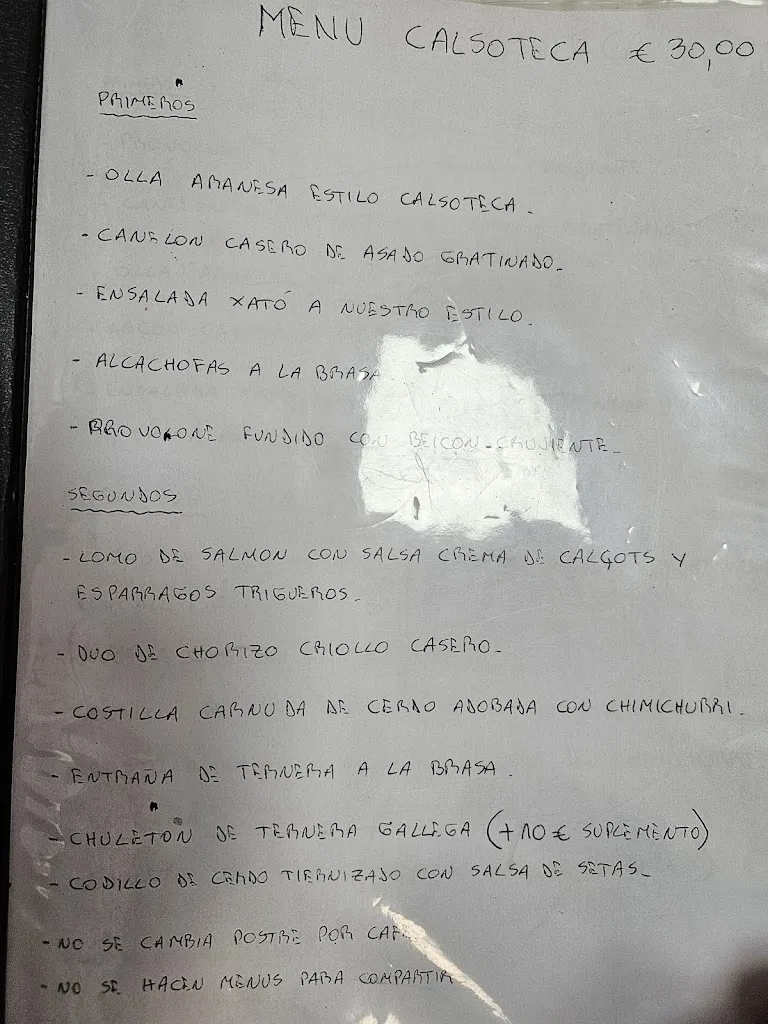 MENU CALSOTECA € 30,00
PRIMEROS
- OLLA ARANESA ESTILO CALSOTECA.
- CANELON CASERO DE ASADO GRATINADO.
- ENSALADA XATÓ A NUESTRO ESTILO.
- ALCACHOFAS A LA BRASA
- PROVOLONE FUNDIDO CON BEICON CRUJIENTE.
SEGUNDOS
- LOMO DE SALMON CON SALSA CREMA DE CALÇOTS Y
ESPARRAGOS TRIGUEROS.
- DUO DE CHORIZO CRIOLLO CASERO.
- COSTILLA CARNUDA DE CERDO ADOBADA CON CHIMICHURRI.
- ENTRAÑA DE TERNERA A LA BRASA.
- CHULETÓN DE TERNERA GALLEGA (+10 € SUPLEMENTO)
- CODILLO DE CERDO TIERNIZADO CON SALSA DE SETAS.
- NO SE CAMBIA POSTRE POR CAFE
- NO SE HACEN MENUS PARA COMPARTIR